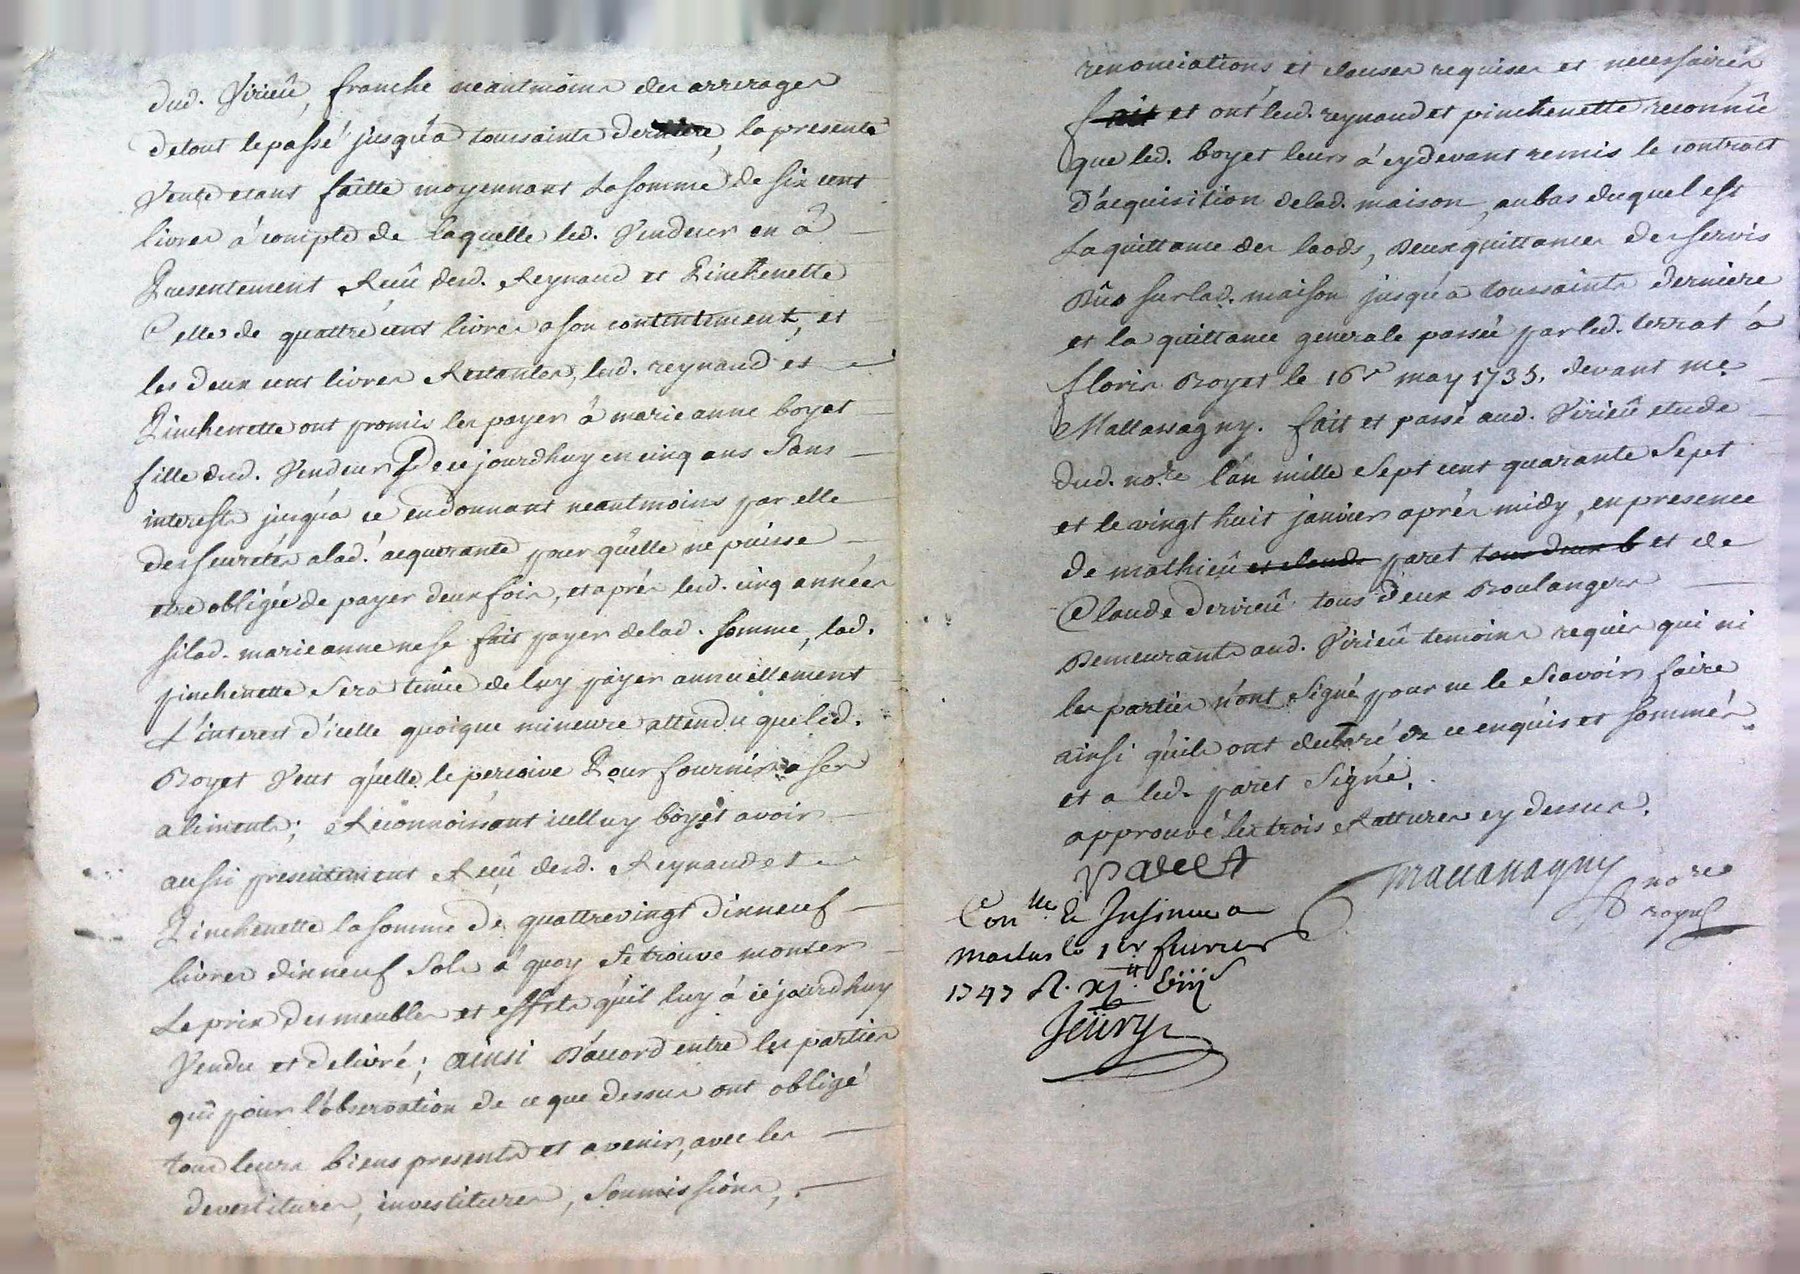 dud. Virieû, franche neantmoins des arrerages
de tout le passé jusqu'a toussaints derniere, la presente
Vente etant faitte moyennant la somme de six cent
livres á compte de laquelle led. Vendeur en á
Presentement Reçû desd. Reynaud et Pinchenette
Celle de quattre cent livres a son contentement, et
les deux cent livres Restantes, lesd. reynaud et
Pinchenette ont promis les payer á marie anne boyet
fille dud. Vendeur De ce jourdhuy en cinq ans Sans
interests jusqu'á ce en donnant neantmoins par elle
des seuretés alad. acquerante pour qu'elle ne puisse
etre obligée de payer deux fois, et aprés lesd. cinq années
si lad. marie anne ne se fait payer de lad. somme, lad.
pinchenette sera tenüe de luy payer annuellement
L'interest d'icelle quoique mineure attendu que led.
Boyet Veut qu'elle le perçoive Pour fournir a ses
aliments; Reconnoissant icelluy boyet avoir
aussi presentement Reçû desd. Reynaud et
Pinchenette la somme de quattrevingt dixneuf
livres dixneuf sols á quoy se trouve monter
Le prix des meubles et effets qu'il luy á cejourdhuy
Vendu et delivré; ainsi D'accord entre les parties
qui pour l'observation de ce que dessus ont obligé
tous leurs biens presents et avenir, avec les
devestitures, investitures, Soumissions,
renonciations et clauses requises et necessaires
fait et ont lesd. reynaud et pinchenette reconnû
que led. boyet leurs á cy devant remis le contract
D'acquisition de lad. maison, au bas duquel est
La quittance des laods, deux quittances de servis
Dûs sur lad. maison jusqu'a toussaints derniere
et la quittance generale passée par led. terrat á
floris Boyet le 16e may 1735. devant me
Mallassagny. fait et passé aud. Virieû etude
dud. nore l'an mille Sept cent quarante Sept
et le vingt huit janvier aprés midy, en presence
de mathieû et claude paret tous deux b et de
Claude dervieû tous deux Boulangers
Demeurants aud. Virieû temoins requis qui ni
les parties n'ont signé pour ne le Scavoir faire
ainsi qu'ils ont declaré de ce enquis et sommés
et a led. paret Signé.
approuvé les trois Rattures cy dessus.
paret
mallassagny nore
royal
Conlle & Insinué a
le 1er fevrier
1747 R.